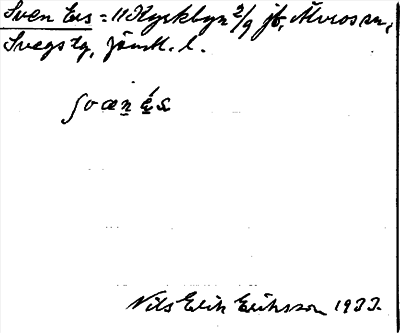 Sven Ers = 11 Kyrkbyn 2/9 jb, Älvros sn,
Svegs tg, Jämtl. l.
Nils Erik Eriksson 1933.